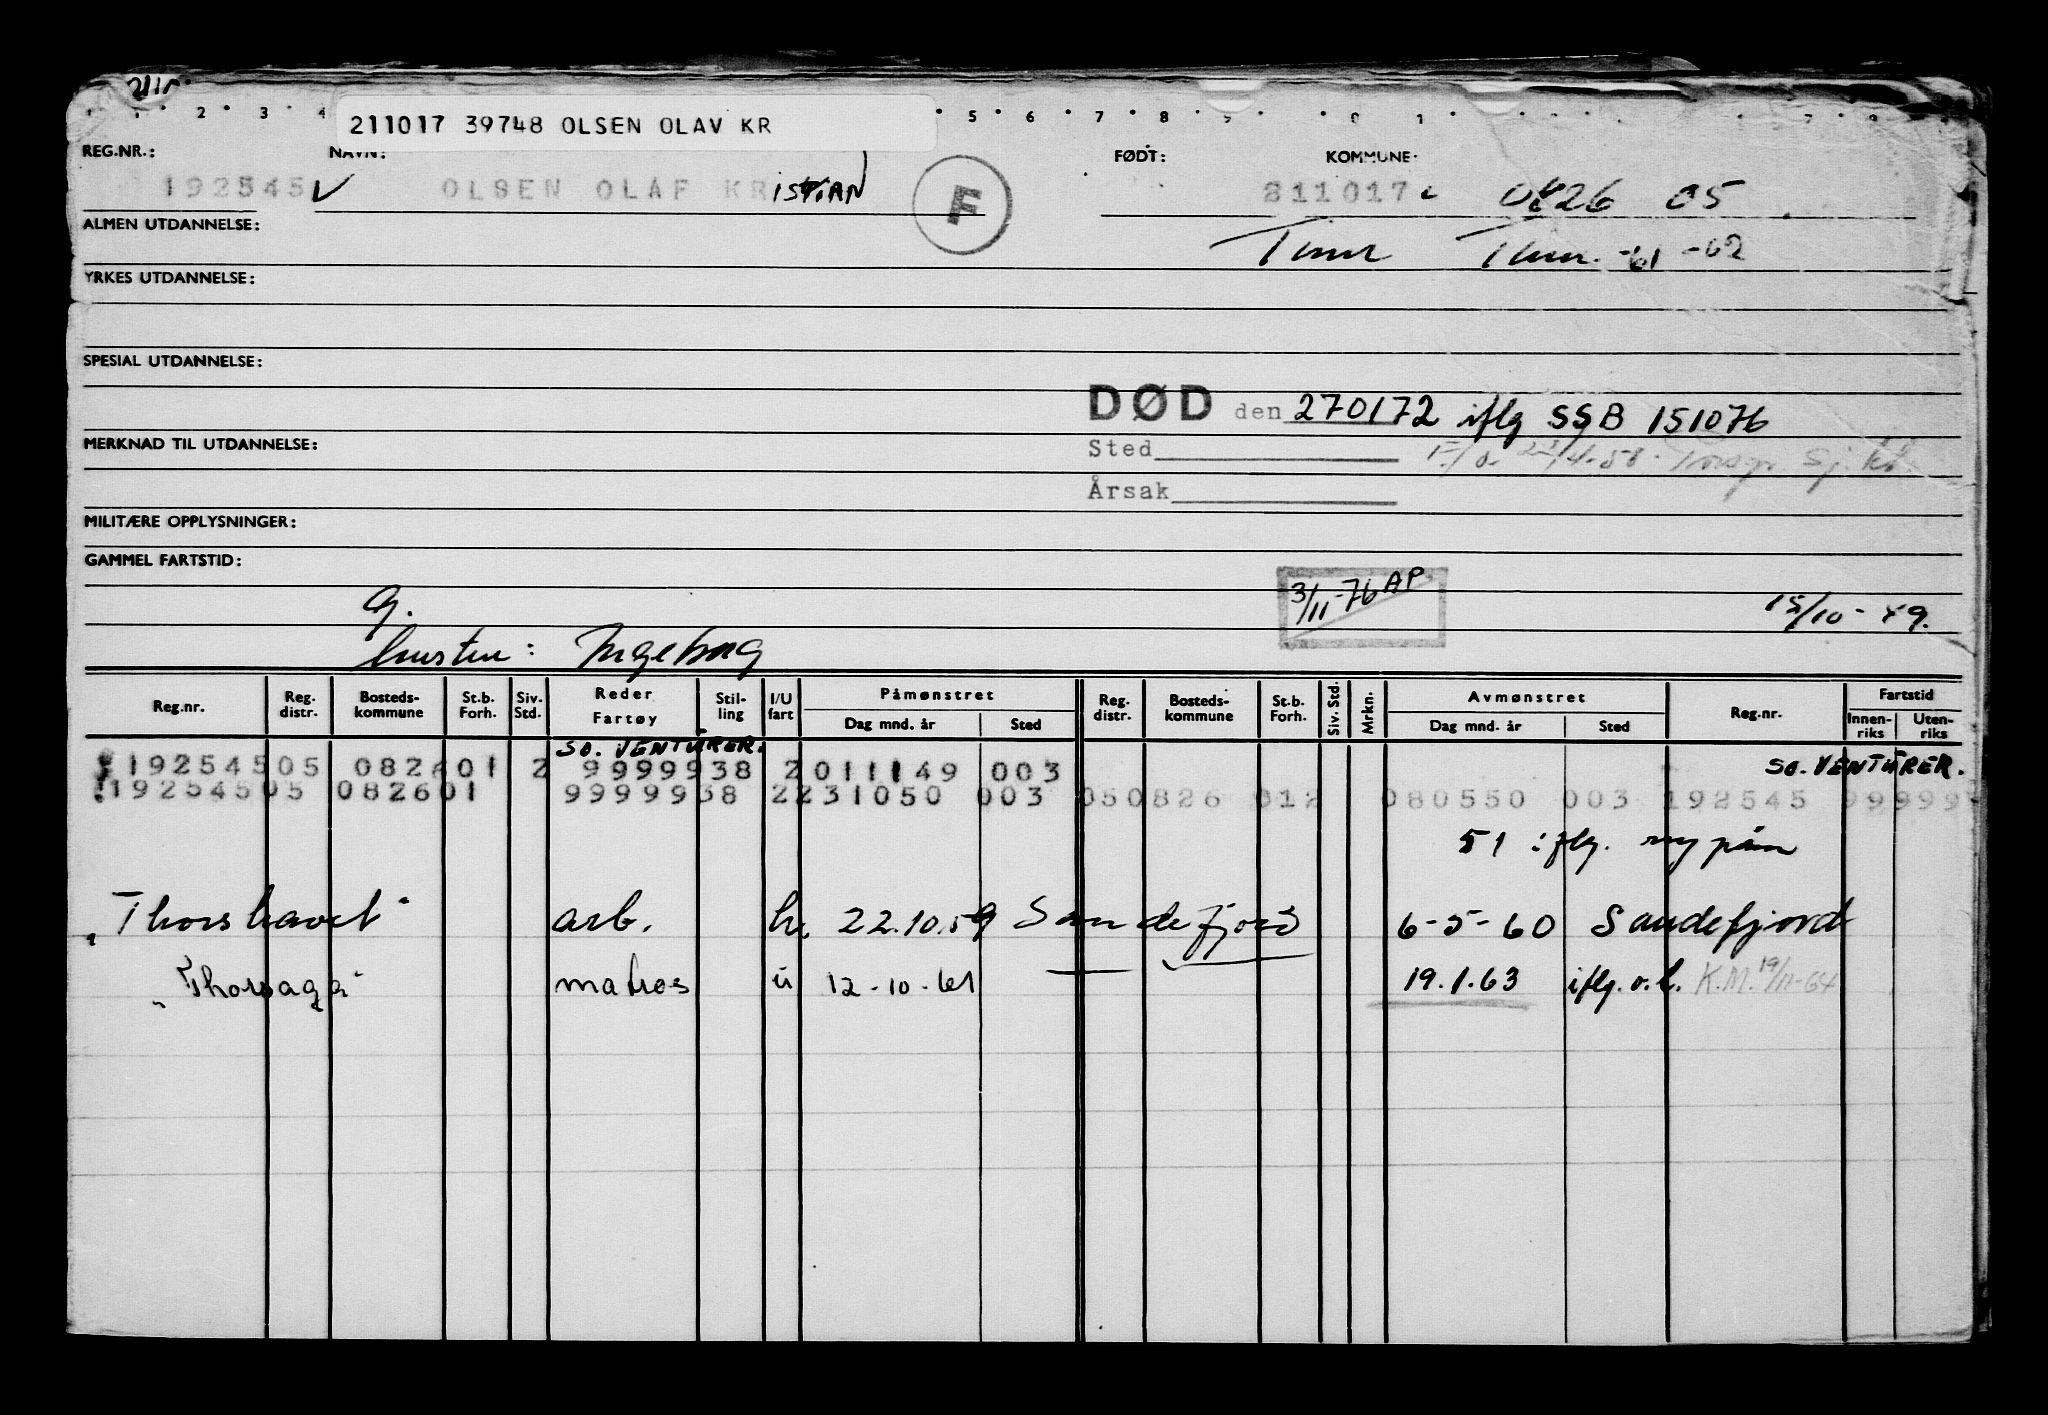 211017 39748 OLSEN OLAV KR
REG.NR.: NAVN: FØDT: KOMMUNE:
192545 V OLSEN OLAF KRISTIAN F 211017 0826 05
ALMEN UTDANNELSE:
Tinn Tinn. -61 -62
YRKES UTDANNELSE:
SPESIAL UTDANNELSE:
DØD den 270172 iflg SSB 151076
MERKNAD TIL UTDANNELSE:
Sted
Årsak
MILITÆRE OPPLYSNINGER:
GAMMEL FARTSTID:
g. 3/11-76 AP 15/10-49.
hustru: Ingeborg
Reg.nr. Reg. distr. Bosteds-kommune St.b. Forh. Siv. Std. Reder Fartøy Stil-ling I/U fart Påmønstret Dag mnd. år Sted Reg. distr. Bosteds-kommune St.b. Forh. Siv. Std. Mrkn. Avmønstret Dag mnd. år Sted Reg.nr. Fartstid Innen-riks Uten-riks
SO. VENTURER. SO. VENTURER.
19254505 082601 2 9999938 2 011149 003
19254505 082601 9999938 2 231050 003 050826 012 080550 003 192545 99999
51 iflg. ny påm
"Thorshavet" arb. h. 22.10.59 Sandefjord 6-5-60 Sandefjord
"Thorsaga" matros u 12-10-61 19.1.63 iflg. o.l. K.M. 19/11-64